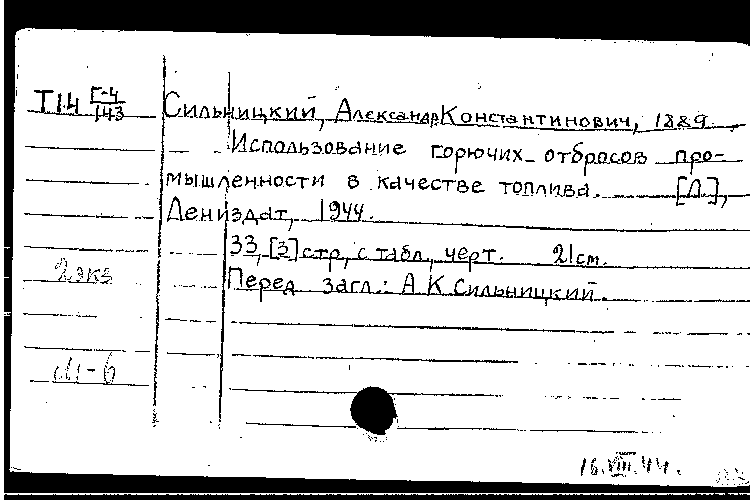 Т14 Г-4/143 Сильницкий, Александр Константинович, 1889.
Использование горючих отбросов про-
мышленности в качестве топлива. [Л.],
Лениздат, 1944.
33, [3] стр, с табл, черт. 21 см.
2 экз
Перед загл.: А К Сильницкий.
М-6
16.VIII.44.